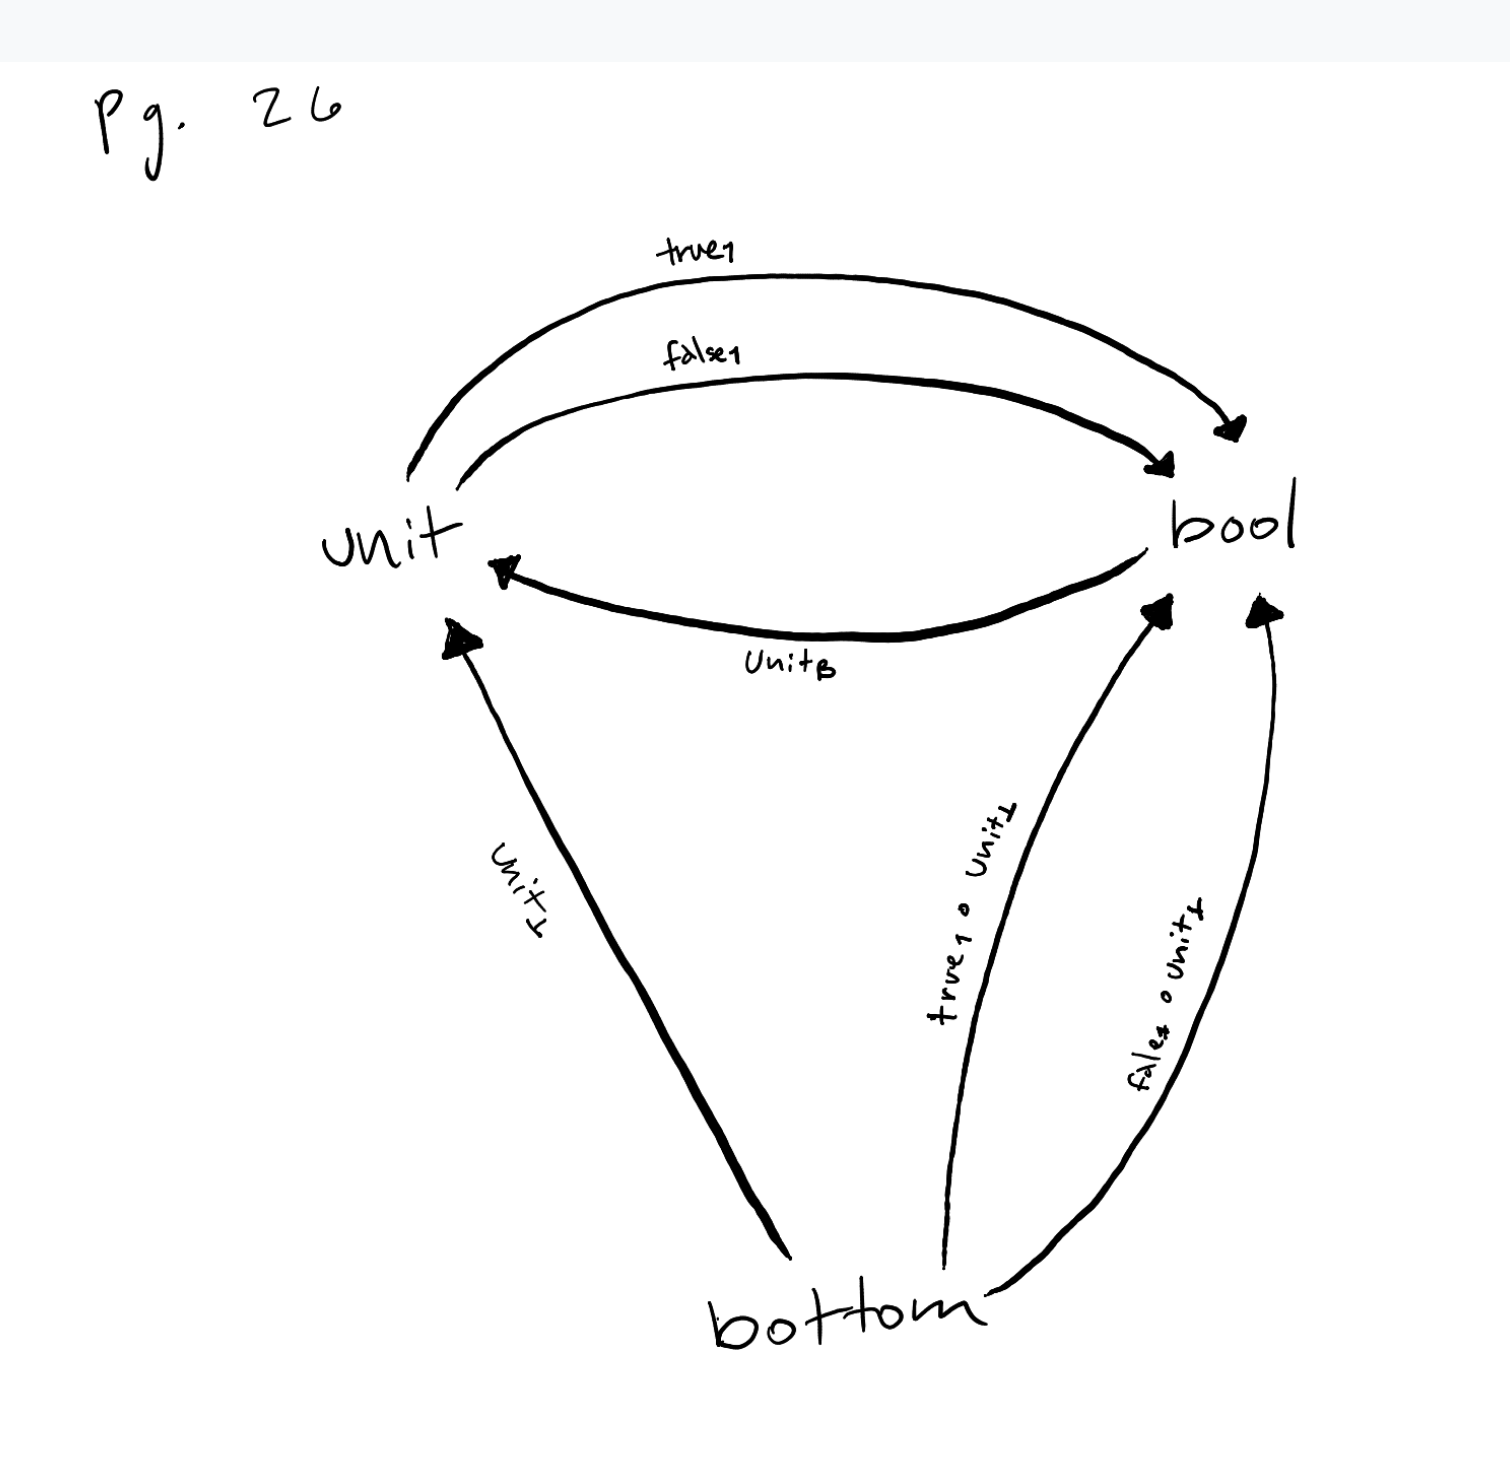 Pg. 26
true₁
false₁
unit
bool
Unit_B
unit_⊥
true₁ ∘ unit_⊥
fale₁ ∘ unit_⊥
bottom